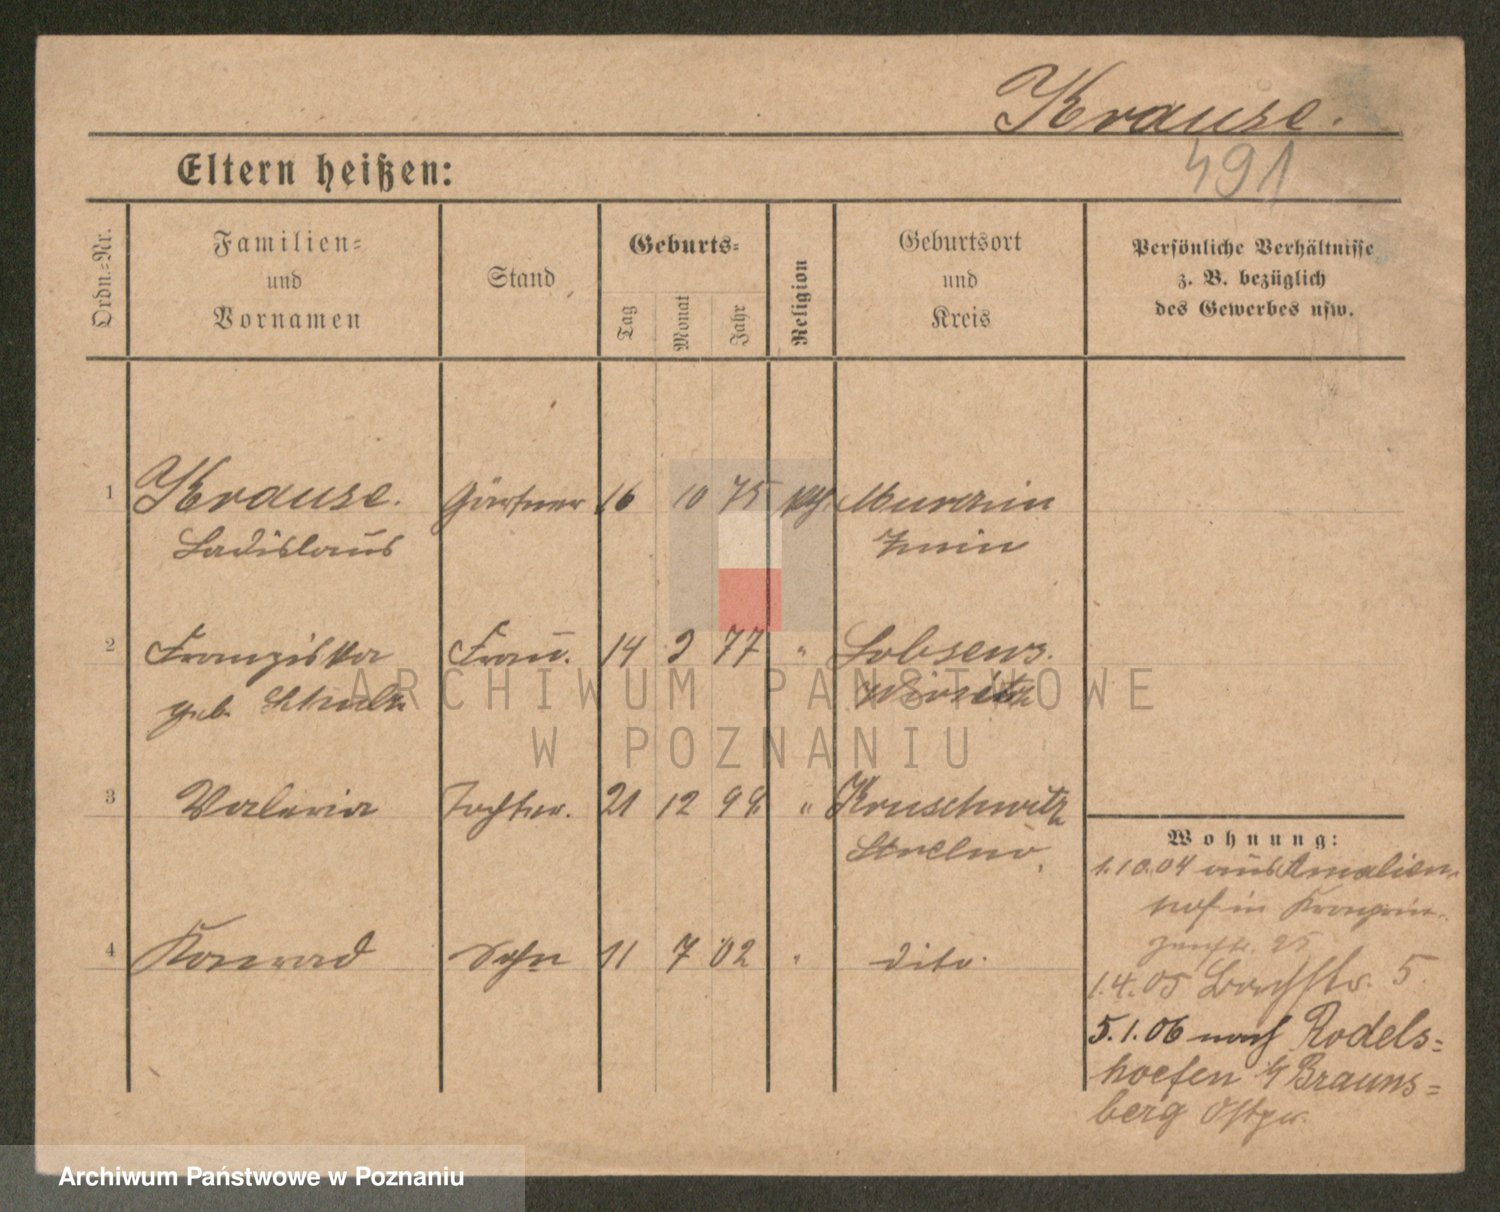 Krause.
491
Eltern heißen:
Ordn.-Nr.
Familien-
und
Vornamen
Stand
Geburts-
Tag
Monat
Jahr
Religion
Geburtsort
und
Kreis
Persönliche Verhältnisse
z. B. bezüglich
des Gewerbes usw.
1 Krause. Gärtner 16 10 75 kth. Murczin
Ladislaus Znin
2 Franziska Frau. 14 9 77 " Lobsens.
geb. Schulz Wirsitz
ARCHIWUM PAŃSTWOWE
W POZNANIU
3 Valeria Tochter. 21 12 98 " Kruschwitz
Strelno
Wohnung:
1.10.04 aus Amalien-
hof in Kronprin-
zenstr. 25
4 Konrad Sohn 11 7 02 " dito.
1.4.05 Bachstr. 5
5.1.06 nach Rodels=
hoefen b/ Brauns=
berg Ostpr.
Archiwum Państwowe w Poznaniu